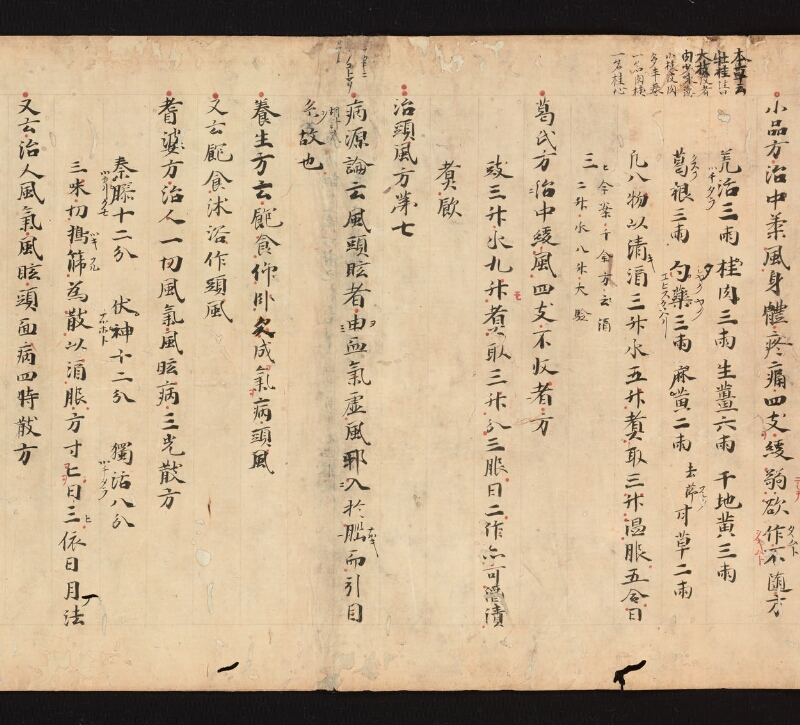 小品方治中柔風身體疼痛四支緩弱欲作不随方
本草云
牡桂
一名肉桂
一名桂心
羌活三兩 桂肉三兩 生薑六兩 干地黄三兩
葛根三兩 勺藥三兩 麻黄二兩 去節 甘草二兩
凡八物以清酒三升水五升煮取三升温服五合日
三 今案千金方云酒
二升水八升大驗
葛氏方治中緩風四支不収者方
豉三升水九升煮取三升分三服日二作亦可酒漬
煮飲
治頭風方第七
病源論云風頭眩者由血氣虚風邪入於腦而引目
系故也
養生方云飽食仰卧久成氣病頭風
又云飽食沐浴作頭風
耆婆方治人一切風氣風眩病三光散方
秦膠十二分 伏神十二分 獨活八分
三味切擣篩為散以酒服方寸匕日三依日月法
又云治人風氣風眩頭面病四時散方